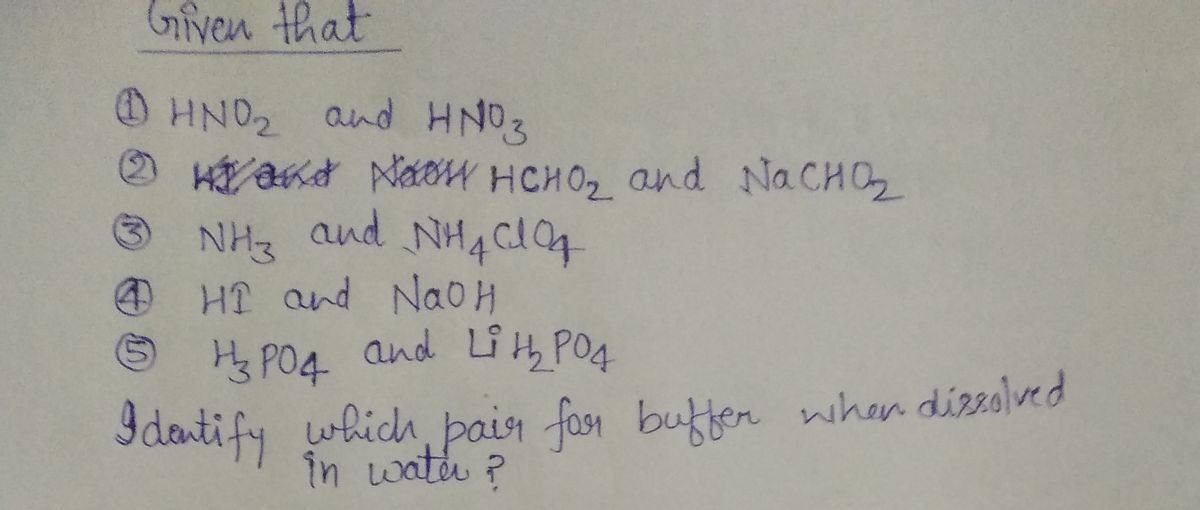 Given that
① HNO₂ and HNO₃
② HCHO₂ and NaCHO₂
③ NH₃ and NH₄ClO₄
④ HI and NaOH
⑤ H₃PO₄ and LiH₂PO₄
Identify which pair for buffer when dissolved
in water?